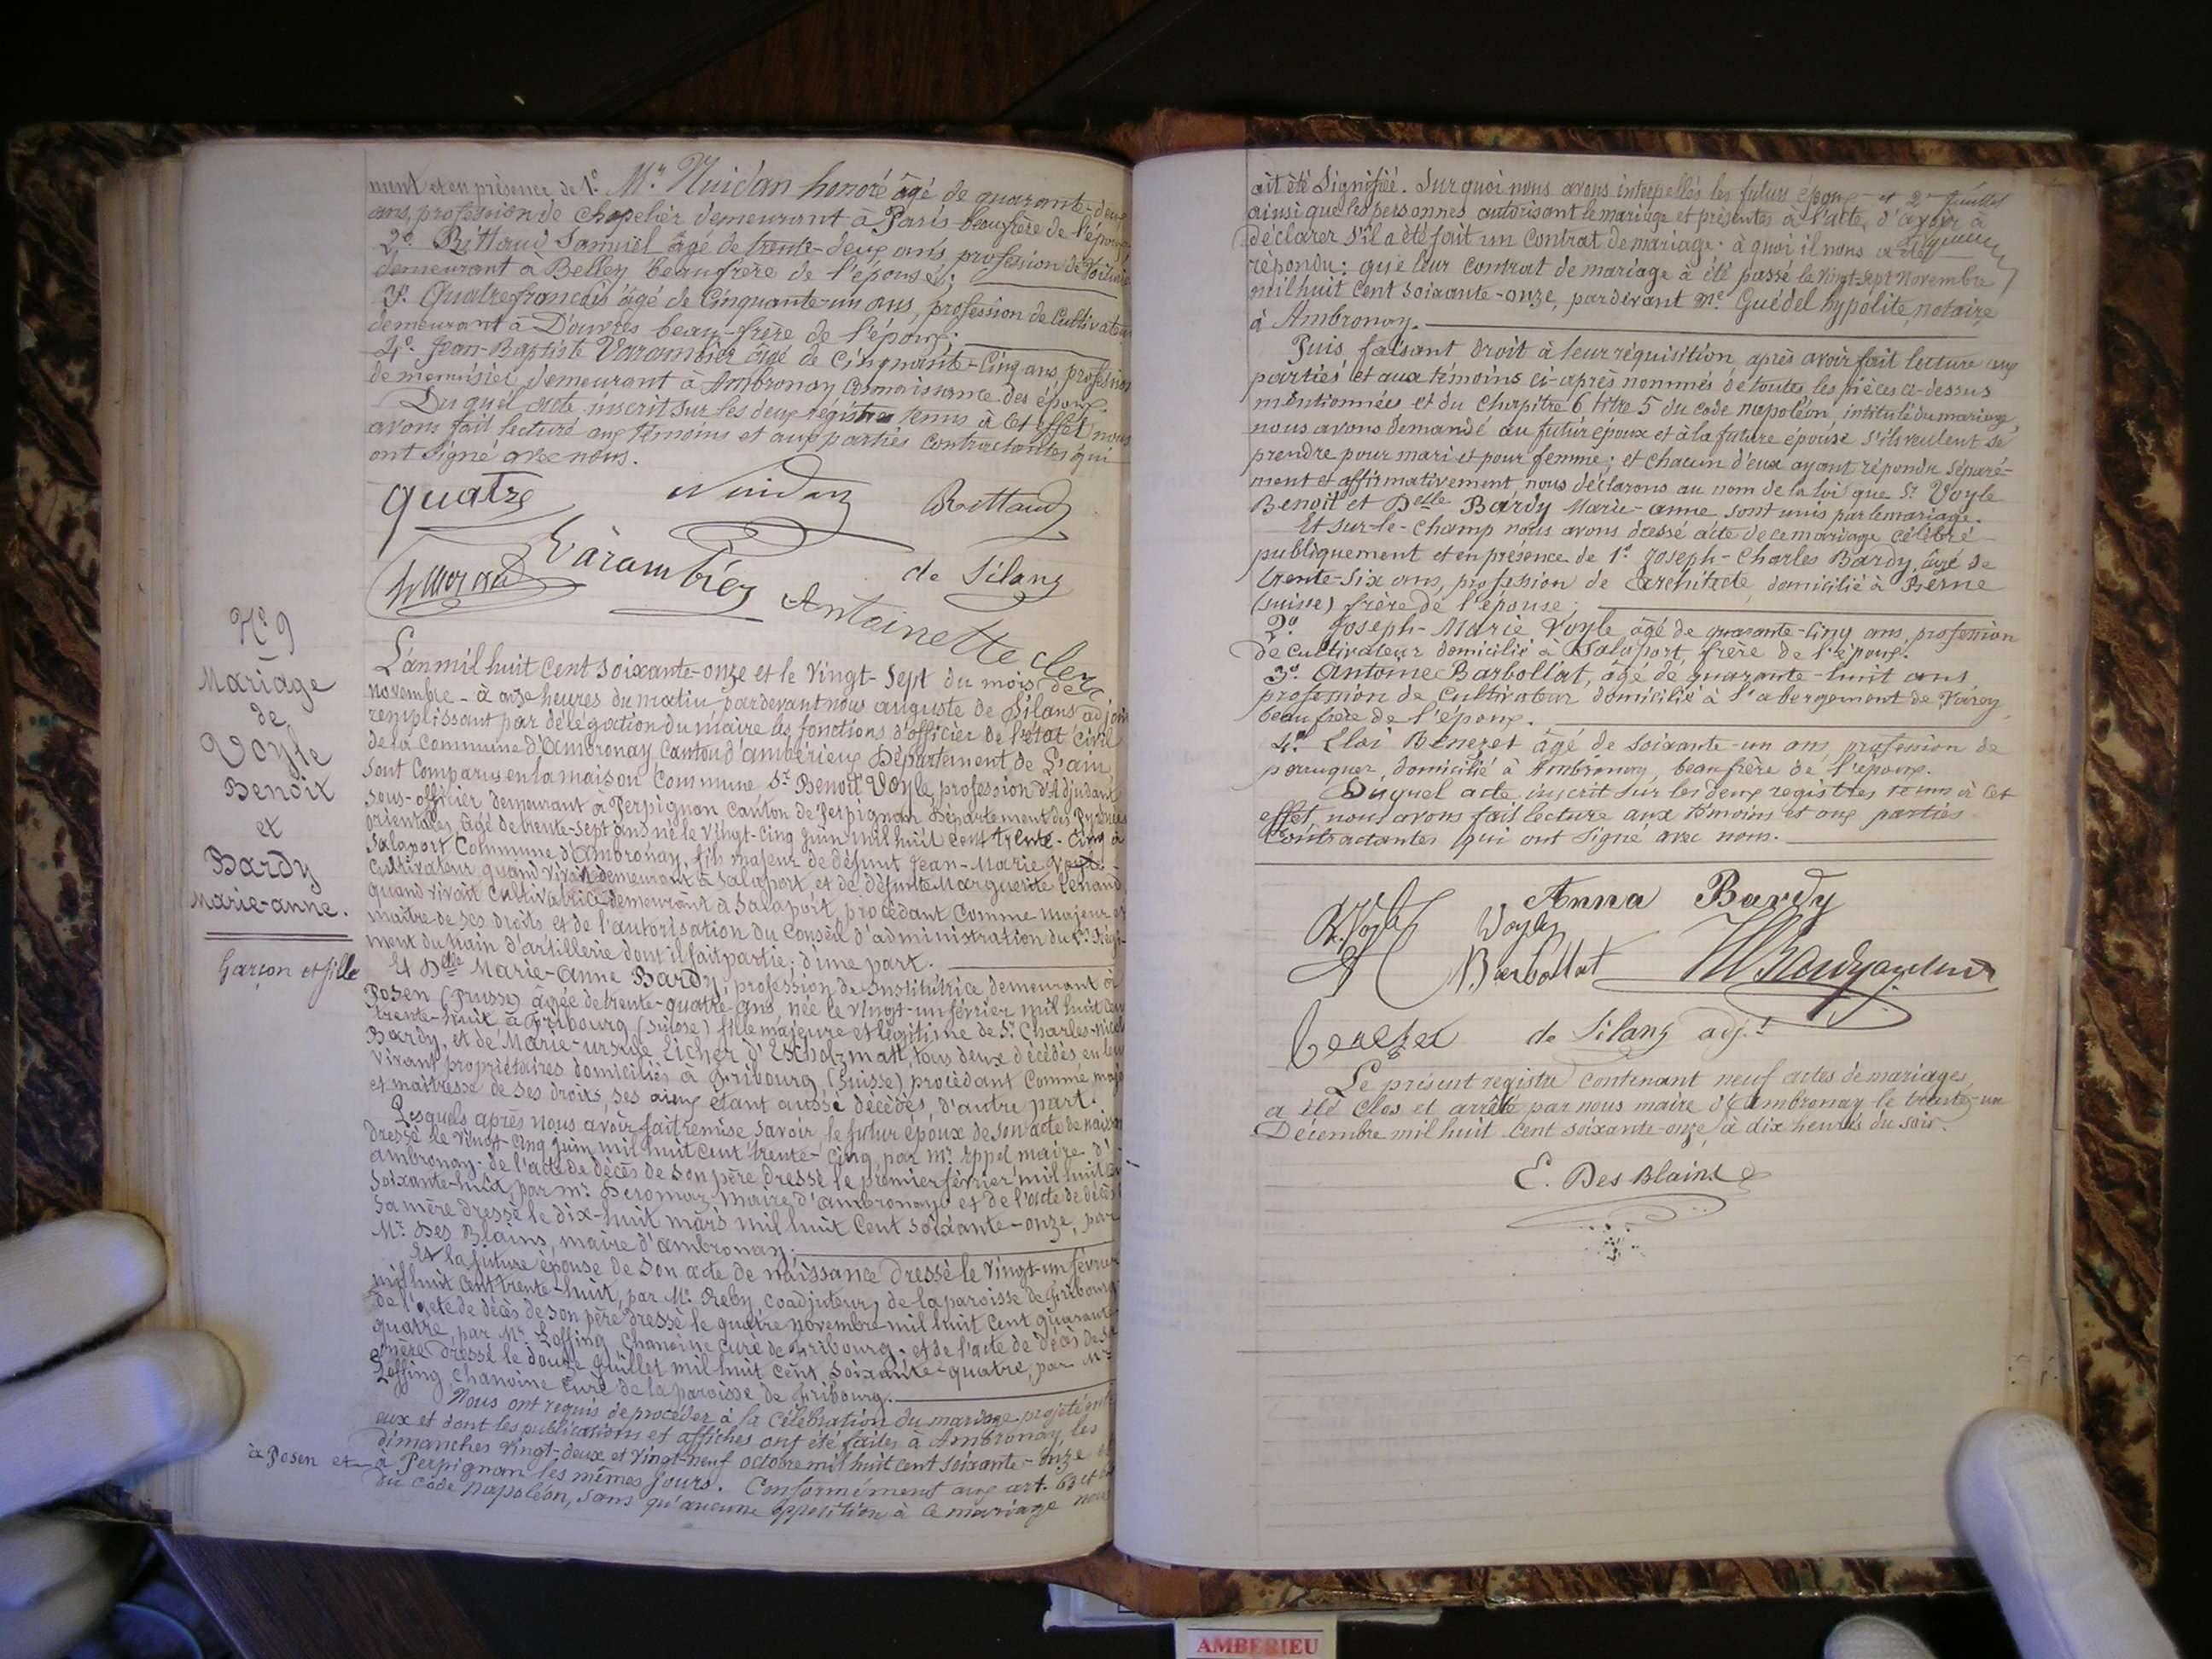 ment et en présence de 1º. Mr. Nuidan honoré âgé de quarante-deux
ans, profession de chapelier demeurant à Paris beaufrère de l'épouse
2º. Rittaud Samuël âgé de trente-deux ans profession de
demeurant à Belley beaufrère de l'épouse;
3º. Quatre françois âgé de Cinquante-un ans, profession de Cultivateur
demeurant à Douvres beau-frère de l'époux;
4º. Jean-Baptiste Varambier âgé de Cinquante-Cinq ans, profession
de menuisier, demeurant à Ambronay Connaissance des époux.
Du quel acte inscrit sur les deux régistres tenus à cet effet nous
avons fait lecture aux témoins et aux parties contractantes qui
ont signé avec nous.
quatre Nuidan Rittaud
Varambier de Silans
Antoinette clerc
Nº 9
Mariage
de
Voyle
Benoit
et
Bardy
Marie-anne.
Garçon et fille
L'an mil huit cent soixante-onze et le vingt-sept du mois de
novembre - à onze heures du matin pardevant nous auguste de Silans adjoint
remplissant par délégation du maire les fonctions d'officier de l'état civil
de la Commune d'ambronay, Canton d'ambérieux Département de L'ain,
sont Comparus en la maison Commune Sr. Benoit Voyle, profession d'Adjudant
sous-officier demeurant à Perpignan canton de Perpignan Département des Pyrénées
orientales, âgé de trente-sept ans né le vingt-cinq juin mil huit cent trente-cinq à
Salaport Commune d'Ambronay, fils majeur de défunt Jean-Marie Voyle
Cultivateur quand vivait demeurant à Salaport, et de défunte Marguerite
quand vivait cultivatrice demeurant à Salaport, procédant Comme majeur et
maître de ses droits et de l'autorisation du Conseil d'administration du 1er Régi-
ment du train d'artillerie dont il fait partie; d'une part.
Et Delle Marie-anne Bardy, profession de Institutrice demeurant à
Posen (Prusse) âgée de trente-quatre ans, née le vingt-un février mil huit cent
trente-huit à Fribourg (Suisse) fille majeure et légitime de Sr. Charles-
Bardy, et de Marie-ursule Licher d'Escholzmatt, tous deux décédés en leur
vivant propriétaires domiciliés à Fribourg (Suisse) procédant Comme majeure
et maîtresse de ses droits, ses aieux étant aussi décédés, d'autre part.
Lesquels après nous avoir fait remise savoir, le futur époux de son acte de naissance
dressé le vingt-cinq juin mil huit cent trente-cinq, par mr. Eppel maire d'
ambronay - de l'acte de décès de son père dressé le premier février mil huit cent
soixante-huit, par mr. Deromar maire d'ambronay et de l'acte de décès de
sa mère dressé le dix-huit mars mil huit cent soixante-onze, par
Mr. Des Blains, maire d'ambronay.
Et la future épouse de son acte de naissance dressé le vingt-un février
mil huit cent trente-huit, par Mr. Reby, coadjuteur, de la paroisse de Fribourg
de l'acte de décès de son père dressé le quatre novembre mil huit cent quarante
quatre, par Mr. Loffing Chanoine curé de Fribourg, et de l'acte de décès de sa
mère dressé le douze Juillet mil huit cent soixante-quatre, par Mr.
Loffing, chanoine curé de la paroisse de Fribourg.
Nous ont requis de procéder à la célébration du mariage projeté entre
eux et dont les publications et affiches ont été faites à Ambronay, les
dimanches vingt-deux et vingt-neuf octobre mil huit cent soixante-onze et
à Posen et à Perpignan les mêmes jours. Conformément aux art. 63 et
du code napoléon, sans qu'aucune opposition à ce mariage nous
ait été signifiée. Sur quoi nous avons interpellés les futurs époux et 2me feuillet
ainsi que les personnes autorisant le mariage et présentes à l'acte, d'avoir à
déclarer s'il a été fait un Contrat de mariage: à quoi il nous a été
répondu: que leur contrat de mariage à été passé le vingt-sept novembre
mil huit cent soixante-onze, pardevant Me. Guédel hypolite, notaire
à Ambronay.
Puis, faisant droit à leur réquisition, après avoir fait lecture aux
parties et aux témoins ci-après nommés de toutes les pièces ci-dessus
mentionnées et du chapitre 6 titre 5 du code napoléon, intitulé du mariage,
nous avons demandé au futur époux et à la future épouse s'ils veulent se
prendre pour mari et pour femme; et chacun d'eux ayant répondu séparé-
ment et affirmativement nous déclarons au nom de la loi que Sr. Voyle
Benoit et Delle Bardy Marie-anne sont unis par le mariage.
Et sur-le-champ nous avons dressé acte de ce mariage célébré
publiquement et en présence de 1º. Joseph-Charles Bardy, âgé de
trente-six ans, profession de architecte, domicilié à Berne
(suisse) frère de l'épouse;
2º. Joseph-Marie Voyle âgé de quarante-cinq ans, profession
de cultivateur domicilié à Salaport, frère de l'époux.
3º. Antoine Barbollat, âgé de quarante-huit ans,
profession de cultivateur domicilié à l'abergement de Varey,
beaufrère de l'époux.
4º. Eloi Benezet âgé de soixante-un ans, profession de
perruquier, domicilié à Ambronay, beaufrère de l'époux.
Duquel acte inscrit sur les deux registres tenus à cet
effet, nous avons fait lecture aux témoins et aux parties
Contractantes qui ont signé avec nous.
Anna Bardy
B. Voyle Voyle
Barbollat
benezet de Silans adj.t
Le présent registre contenant neuf actes de mariages,
a été clos et arrêté par nous maire d'Ambronay le trente-un
Décembre mil huit cent soixante-onze, à dix heures du soir.
E. Des Blains
AMBERIEU